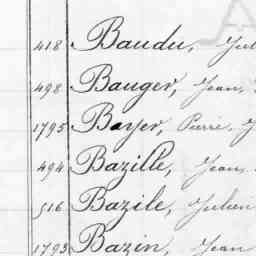 418 Baudu, Jul
498 Bauger, Jean,
1795 Bayer, Pierre, J
494 Bazille, Jean
516 Bazile, Julien
1793 Bazin, Jean